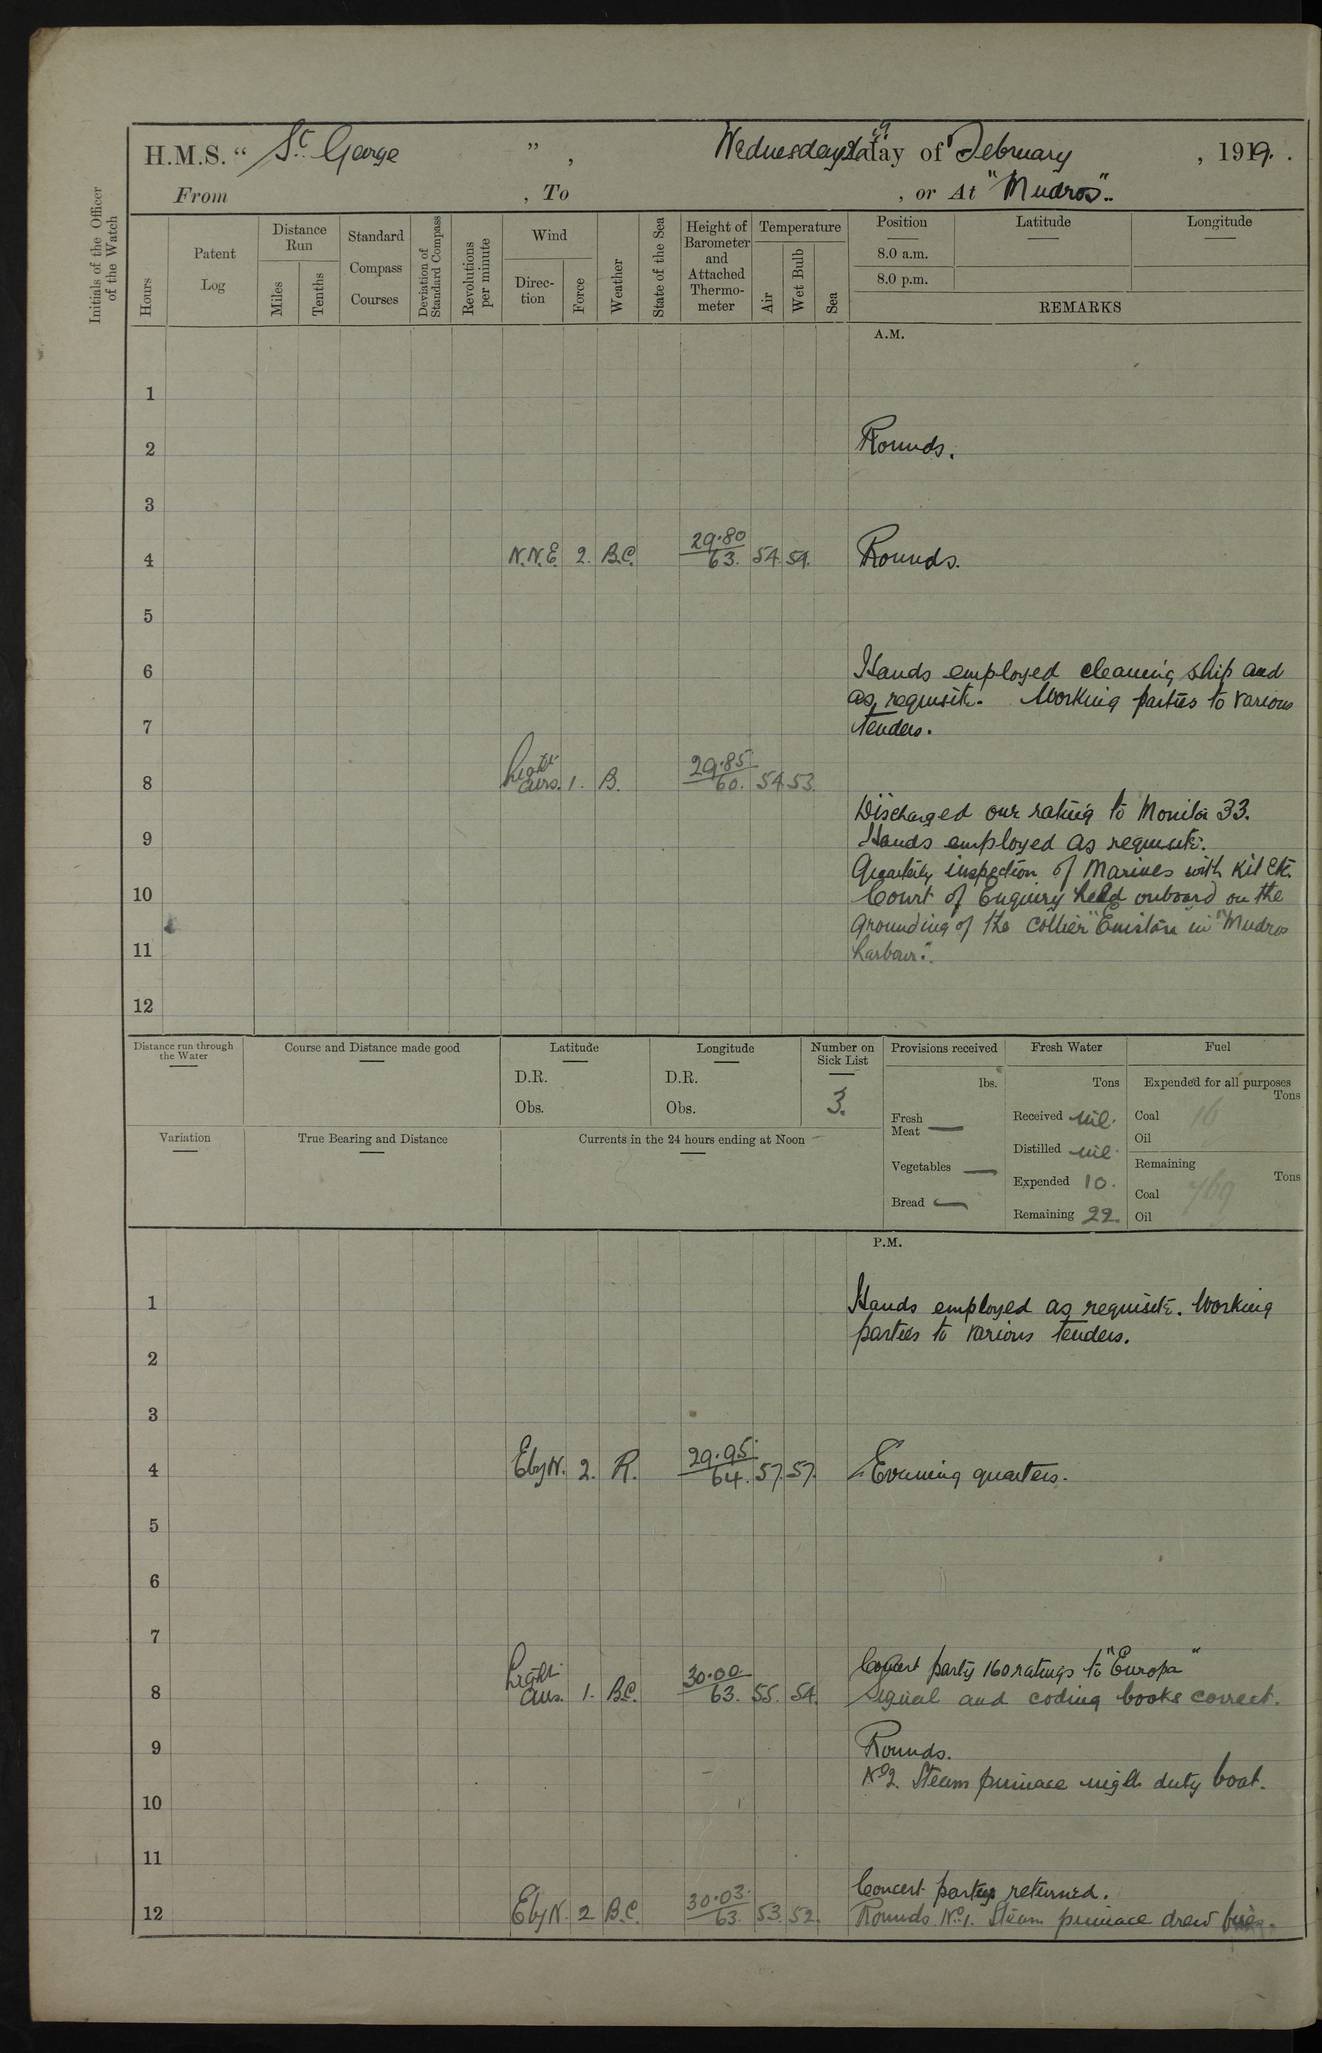 H.M.S. “ St. George ” , Wednesday day of February , 1919.
From , To , or At "Mudros".
Initials of the Officer of the Watch
Hours
Patent Log
Distance Run
Miles
Tenths
Standard Compass Courses
Deviation of Standard Compass
Revolutions per minute
Wind
Direction
Force
Weather
State of the Sea
Height of Barometer and Attached Thermometer
Temperature
Air
Wet Bulb
Sea
Position Latitude Longitude
8.0 a.m.
8.0 p.m.
REMARKS
A.M.
1
2 Rounds.
3
4 N.N.E. 2. B.C. 29.80 63. 54. 54. Rounds.
5
6 Hands employed cleaning ship and
as requisite. Working parties to various
7 tenders.
8 Light airs. 1. B. 29.85 60. 54 53.
Discharged one rating to Monitor 33.
9 Hands employed as requisite.
Quarterly inspection of Marines with Kit etc.
10 Court of Enquiry held onboard on the
grounding of the collier in "Mudros
11 harbour".
12
Distance run through the Water
Course and Distance made good
Latitude
D.R.
Obs.
Longitude
D.R.
Obs.
Number on Sick List
3.
Provisions received
lbs.
Fresh Meat —
Vegetables —
Bread —
Fresh Water
Tons
Received nil.
Distilled nil.
Expended 10.
Remaining 22.
Fuel
Expended for all purposes
Tons
Coal 16
Oil
Remaining
Tons
Coal 769
Oil
Variation
True Bearing and Distance
Currents in the 24 hours ending at Noon
P.M.
1 Hands employed as requisite. Working
parties to various tenders.
2
3
4 E by N. 2. R. 29.95 64. 57. 57. Evening quarters.
5
6
7
Concert party 160 ratings to "Europa"
8 Light airs. 1. B.C. 30.00 63. 55. 54. Signal and coding books correct.
9 Rounds.
No 2. Steam pinnace night duty boat.
10
11
Concert party returned.
12 E by N. 2 B.C. 30.03. 63. 53. 52. Rounds No 1. Steam pinnace drew fires.